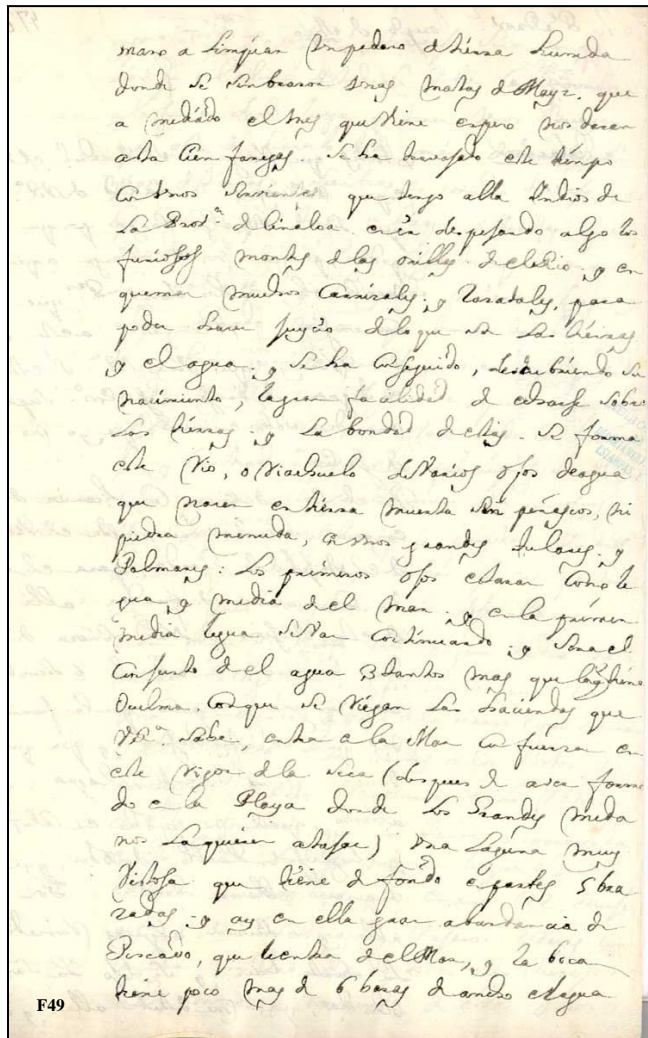 mano a limpiar un pedazo de tierra humeda
donde se sembraron unas matas de Mayz. que
a mediado el mes que viene espero nos daran
asta Cien fanegas. Se ha travajado este tiempo
con unos sirvientes que tengo alla Yndios de
La Prov.ª de Sinaloa en ir despejando algo los
montes de las orillas de el Rio; y en
quemar muchos Carrizales; y Zacatales, para
poder hacer juycio de lo que son Las tierras
y el agua; y se ha conseguido, descubriendo su
nacimiento, la gran facilidad de echarse sobre
Las tierras; y La bondad de estas. Se forma
este Rio, o Riachuelo de Varios ojos de agua
que nacen en tierra muerta sin peñascos, ni
piedra menuda, en unos grandes tulares; y
Palmares: Los primeros ojos estaran como le
gua y media de el mar; y en la primera
media legua se van continuando; y sera el
conjunto de el agua 3 tantos mas que la q.e tiene
con que se Riegan Las haciendas que
V.R.ª sabe, entra a la Mar con fuerza en
este rigor de la seca (despues de aver forma
do en la Playa donde Los Grandes meda
nos La quieren atajar) una Laguna muy
Vistosa que tiene de fondo en partes 5 bra
zadas; y ay en ella gran abundancia de
Pescado, que le entra de el Mar, y la boca
tiene poco mas de 6 baras de ancho el agua
F49